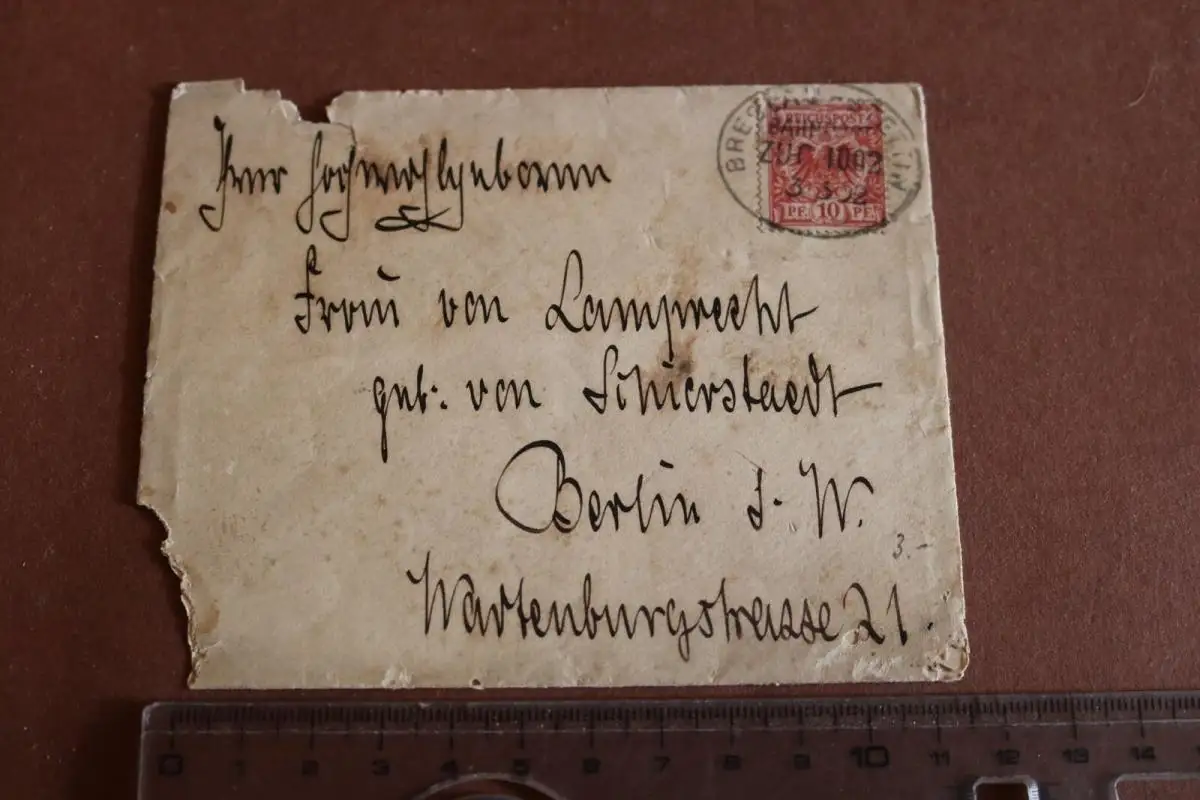 Ihrer Hochwohlgeboren
Frau von Lamprecht
geb: von Schierstaedt
Berlin S. W.
3.-
Wartenburgstrasse 21.
REICHSPOST
ZUG 1002
PF 10 PF
0 1 2 3 4 5 6 7 8 9 10 11 12 13 14